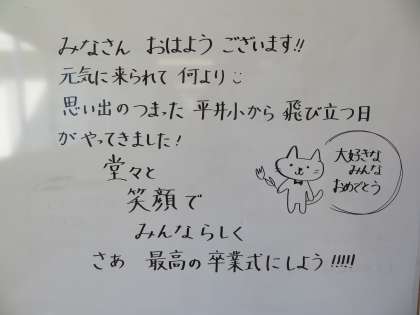 みなさん おはよう ございます!!
元気に来られて 何より
思い出のつまった 平井小から 飛び立つ日
がやってきました!
堂々と
笑顔で
みんならしく
さあ 最高の卒業式にしよう!!!!!
大好きな
みんな
おめでとう